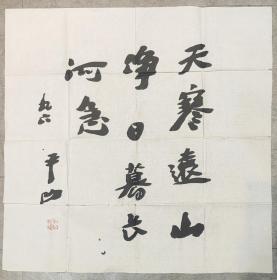 天寒遠山
净日暮长
河急
九六
平山